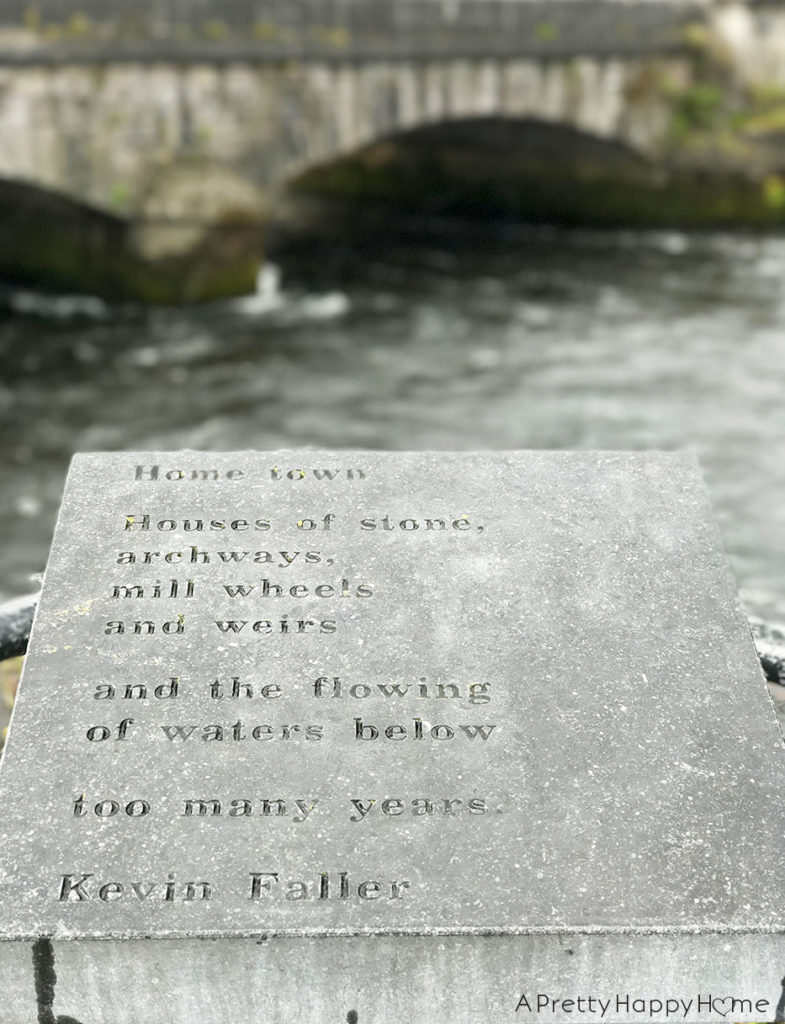 Home town
Houses of stone,
archways,
mill wheels
and weirs
and the flowing
of waters below
too many years.
Kevin Faller
A Pretty Happy Home